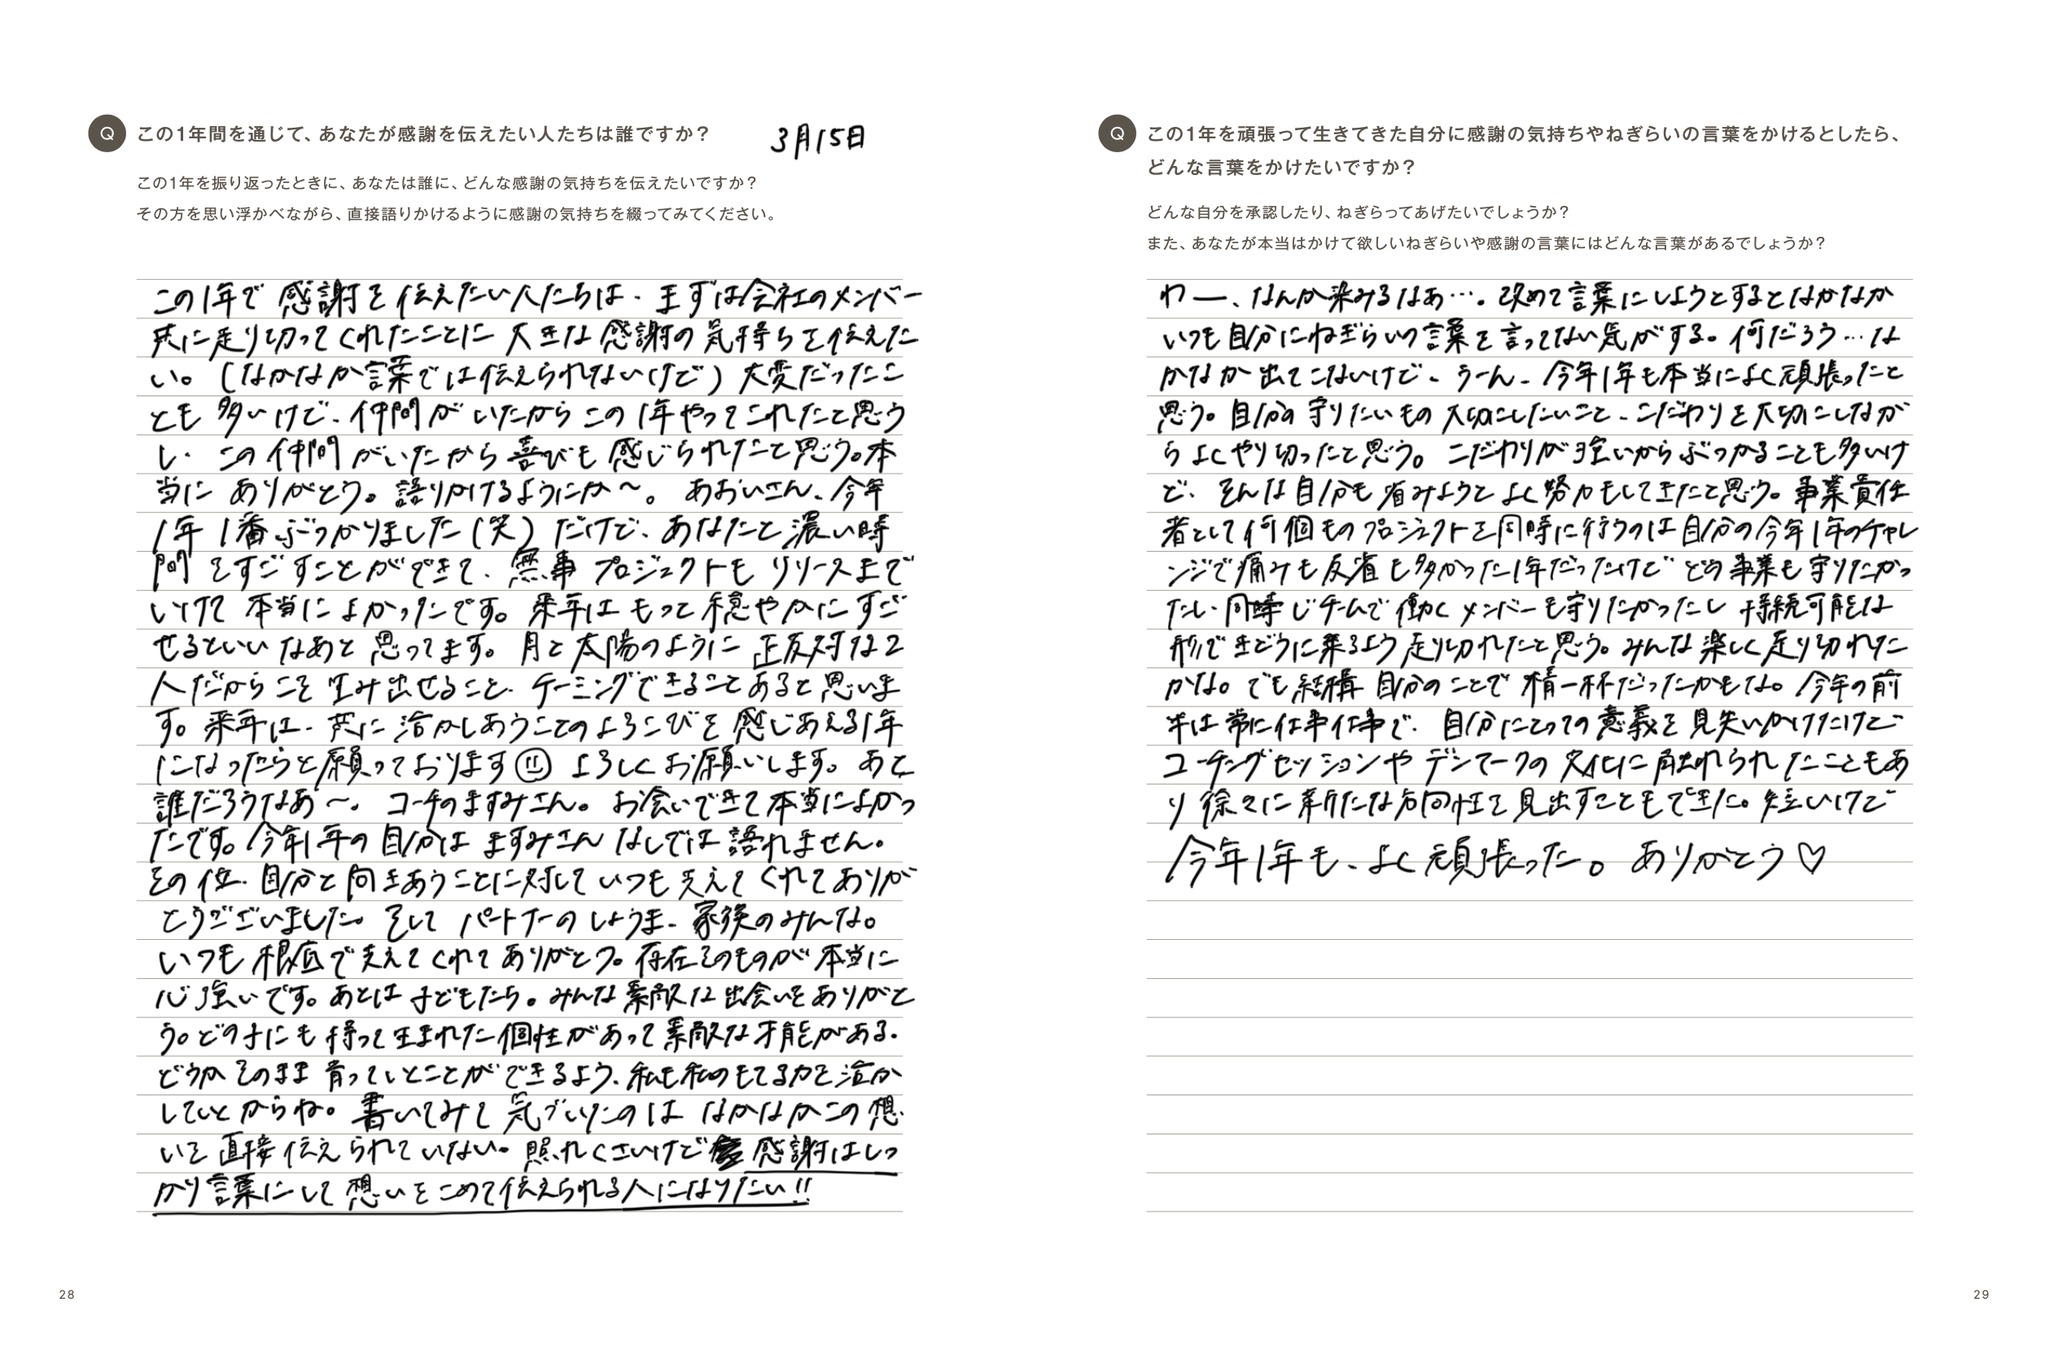 Q この1年間を通じて、あなたが感謝を伝えたい人たちは誰ですか？
3月15日
この1年を振り返ったときに、あなたは誰に、どんな感謝の気持ちを伝えたいですか？
その方を思い浮かべながら、直接語りかけるように感謝の気持ちを綴ってみてください。
この1年で感謝を伝えたい人たちは、まずは会社のメンバー
共に走り切ってくれたことに大きな感謝の気持ちを伝えた
い。(なかなか言葉では伝えられないけど)大変だったこ
とも多いけど、仲間がいたからこの1年やってこれたと思う
し、この仲間がいたから喜びも感じられたと思う。本
当にありがとう。語りかけるようにか〜。あおいさん、今年
1年1番ぶつかりました(笑)だけど、あなたと濃い時
間をすごすことができて、無事プロジェクトもリリースまで
いけて本当によかったです。来年はもっと穏やかにすご
せるといいなあと思ってます。月と太陽のように正反対な2
人だからこそ生み出せること、チーミングできることあると思いま
す。来年は、共に活かしあうことのよろこびを感じあえる1年
になったらと願っております よろしくお願いします。あと
誰だろうなあ〜。コーチのますみさん。お会いできて本当によかっ
たです。今年1年の自分はますみさんなしでは語れません。
その位、自分と向きあうことに対していつも支えてくれてありが
とうございました。そしてパートナーのしょうま、家族のみんな。
いつも根底で支えてくれてありがとう。存在そのものが本当に
心強いです。あとは子どもたち。みんな素敵な出会いをありがと
う。どの子にも持って生まれた個性があって素敵な才能がある。
どうかそのまま育っていくことができるよう、私も私のもてる力を活か
していくからね。書いてみて気づいたのはなかなかこの想
いを直接伝えられていない。照れくさいけど 感謝はしっ
かり言葉にして想いをこめて伝えられる人になりたい!!
28
Q この1年を頑張って生きてきた自分に感謝の気持ちやねぎらいの言葉をかけるとしたら、
どんな言葉をかけたいですか？
どんな自分を承認したり、ねぎらってあげたいでしょうか？
また、あなたが本当はかけて欲しいねぎらいや感謝の言葉にはどんな言葉があるでしょうか？
わー、なんか染みるなあ…。改めて言葉にしようとするとなかなか
いつも自分にねぎらいの言葉を言ってない気がする。何だろう…な
かなか出てこないけど、うーん、今年1年も本当によく頑張ったと
思う。自分の守りたいもの大切にしたいこと、こだわりを大切にしなが
らよくやり切ったと思う。こだわりが強いからぶつかることも多いけ
ど、そんな自分も省みようとよく努力もしてきたと思う。事業責任
者として何個ものプロジェクトを同時に行うのは自分の今年1年のチャレ
ンジで痛みも反省も多かった1年だったけどどの事業も守りたかっ
たし、同じチームで働くメンバーも守りたかったし持続可能な
形できどうに乗るよう走り切れたと思う。みんな楽しく走り切れた
かな。でも結構自分のことで精一杯だったかもな。今年の前
半は常に仕事仕事で、自分にとっての意義を見失いかけたけど
コーチングセッションやデンマークの文化に触れられたこともあ
り徐々に新たな方向性を見出すこともできた。短いけど
今年1年も、よく頑張った。ありがとう♡
29